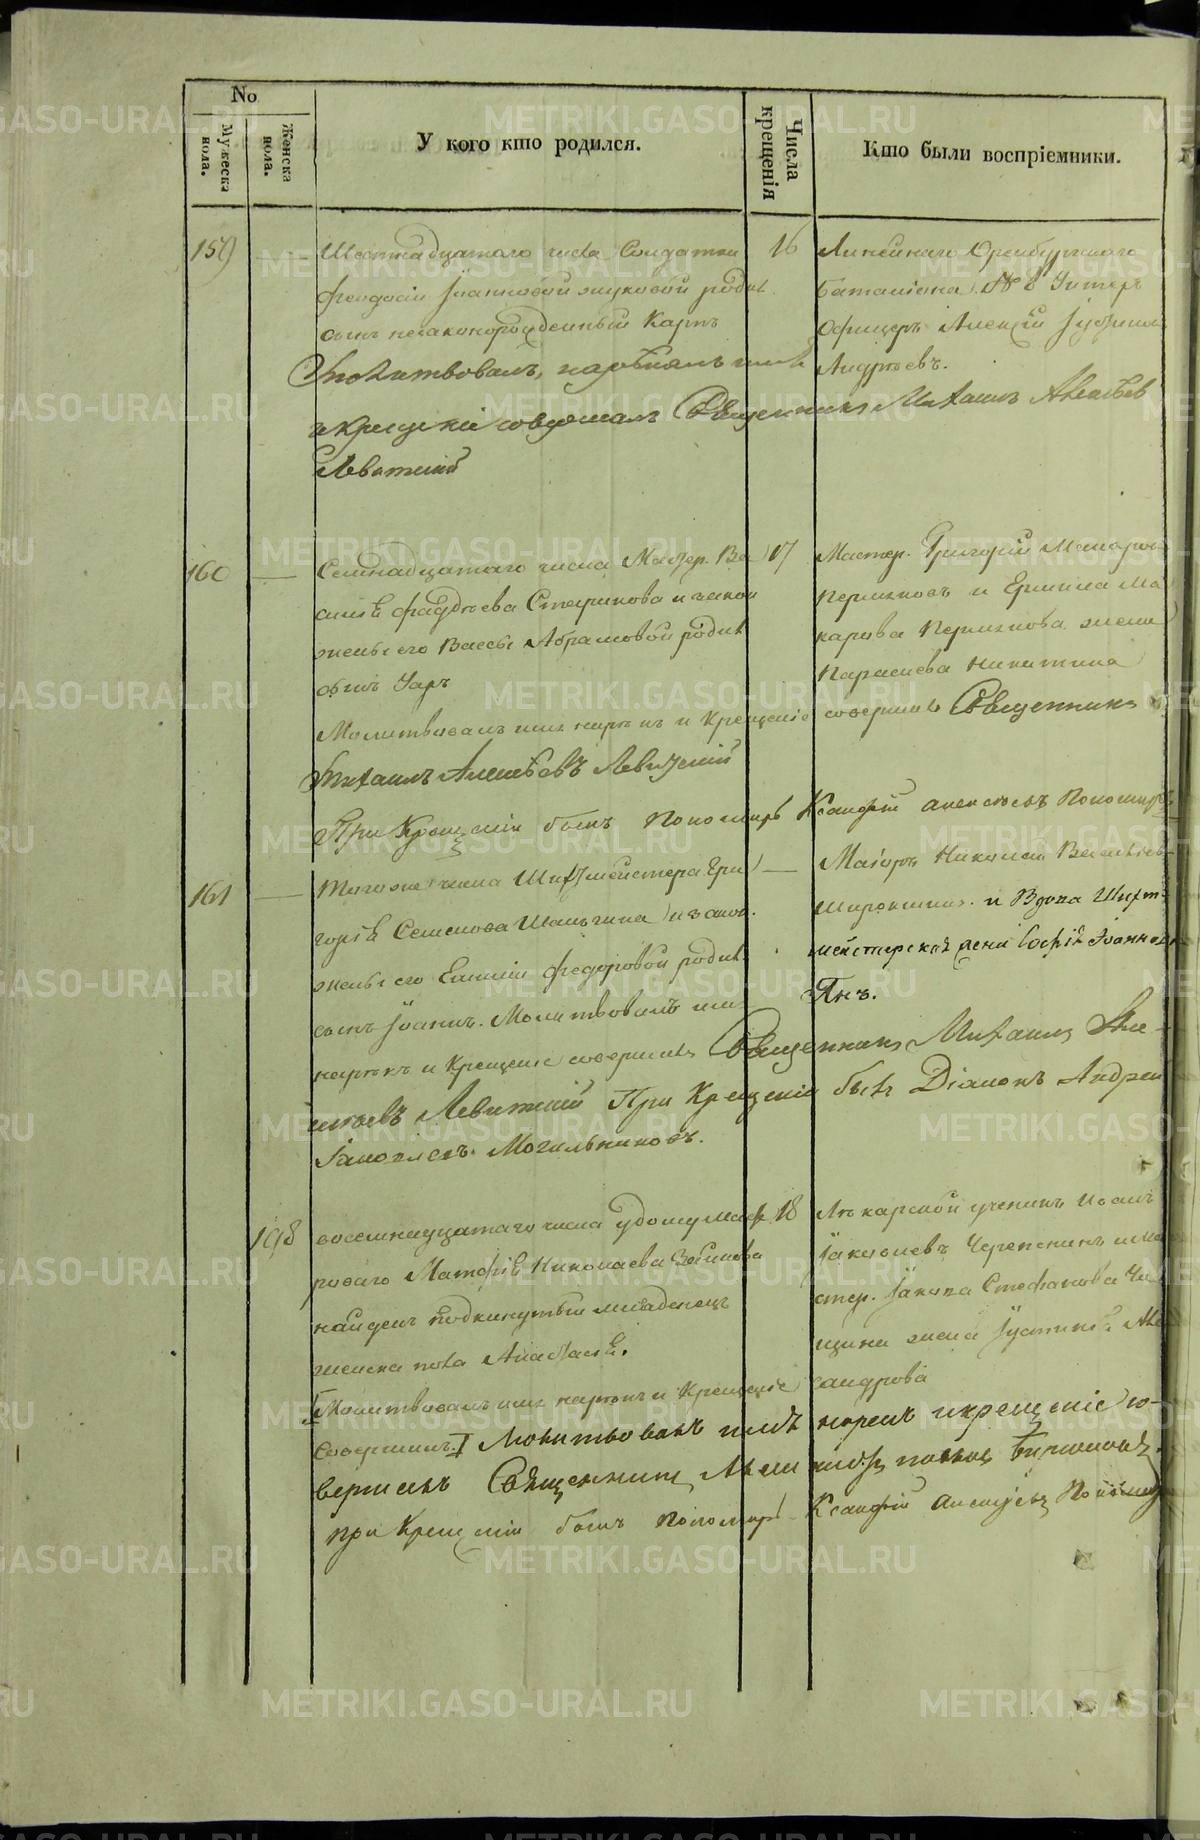 No
Мужеска пола.
Женска пола.
У кого кто родился.
Числа крещенія
Кто были воспріемники.
159
Шестнадцатаго числа Солдатки
Феодосіи Іоанновой Жуковой родил.
сынъ незаконорожденный Карпъ
Молитвовалъ, нарѣкалъ имя
и крещеніе совершалъ Священникъ Михаилъ Алексѣев
Левитскій
16
Линейнаго Оренбургскаго
баталіона № 8 Унтеръ
Офицеръ Алексѣй
Андреевъ.
160
Семнадцатаго числа Мастер. Ва
силія Фаддѣева Старикова и закон
жены его Вассы Абрамовой родил
сынъ Уаръ
Молитвовалъ имя нарѣкъ и Крещеніе совершилъ Священникъ
Михаилъ Алексѣевъ Левитскій
При Крещеніи былъ Пономарь Ксанфій Алексѣевъ Пономаревъ
17
Мастер. Григорій Макаров
Пермяковъ и Ермила Ма
карова Пермякова жена
Парасковья Никитина
161
Тогоже числа Шихтмейстера Гри
горія Семенова Шаньгина и закон.
жены его Евгеніи Федоровой родил
сынъ Іоаннъ. Молитвовалъ имя
нарѣкъ и Крещеніе совершилъ Священникъ Михаилъ Але-
ксѣевъ Левитскій При Крещеніи былъ Діаконъ Андрей
Іаковлевъ Могильниковъ.
Маіоръ Николай Васильев
Широкшинъ. и Вдова Шихт-
мейстерская жена Софія Іоаннова
Янъ.
198
восемнадцатаго числа у дому Масте
роваго Матфія Николаева Зобнинова
найденъ подкинутый младенецъ
женска пола Анастасія.
Молитвовалъ имя нарѣкъ и Крещеніе
совершилъ. Молитвовалъ имя нарекъ и крещеніе со-
вершилъ Священникъ
при Крещеніи былъ Пономарь Ксанфій Алексѣевъ Пономар
18
Лѣкарской ученикъ Иванъ
Іаковлевъ Черепанинъ и Ма
стер. Іакова Стефанова Чи
щина жена Іустинія Але
ксандрова
METRIKI.GASO-URAL.RU